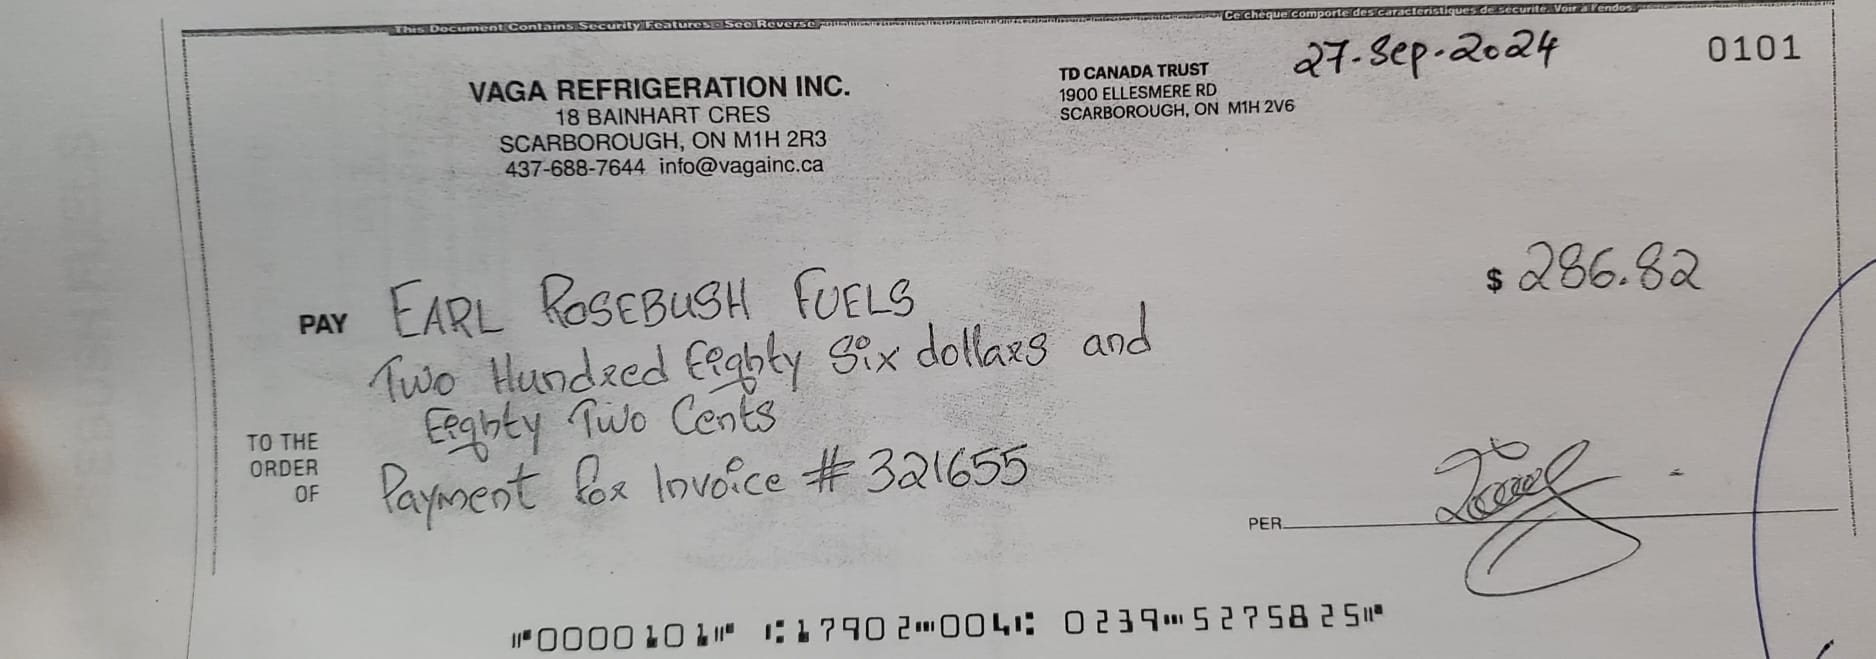 This Document Contains Security Features - See Reverse
Ce chèque comporte des caractéristiques de sécurité. Voir à l'endos.
27-Sep-2024
0101
VAGA REFRIGERATION INC.
18 BAINHART CRES
SCARBOROUGH, ON M1H 2R3
437-688-7644 info@vagainc.ca
TD CANADA TRUST
1900 ELLESMERE RD
SCARBOROUGH, ON M1H 2V6
$ 286.82
PAY EARL ROSEBUSH FUELS
Two Hundred Eighty Six dollars and
Eighty Two Cents
TO THE
ORDER
OF
Payment for Invoice # 321655
PER
⑈0000101⑈ ⑆17902⑉004⑆ 0239⑉5275825⑈